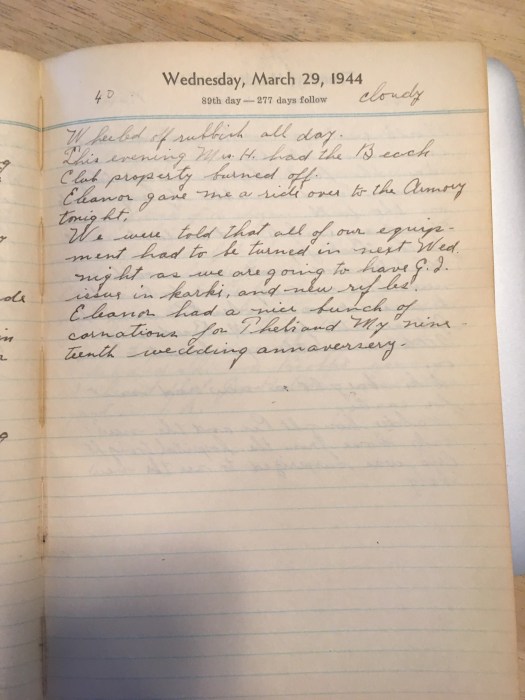 Wednesday, March 29, 1944
89th day — 277 days follow
40
cloudy
Wheeled off rubbish all day.
This evening M. H. had the Beech
Club property burned off.
Eleanor gave me a ride over to the Armory
tonight.
We were told that all of our equip-
ment had to be turned in next Wed.
night as we are going to have G. I.
issue in karki, and new rifles.
Eleanor had a nice bunch of
carnations for and My nine-
teenth wedding annaversery.